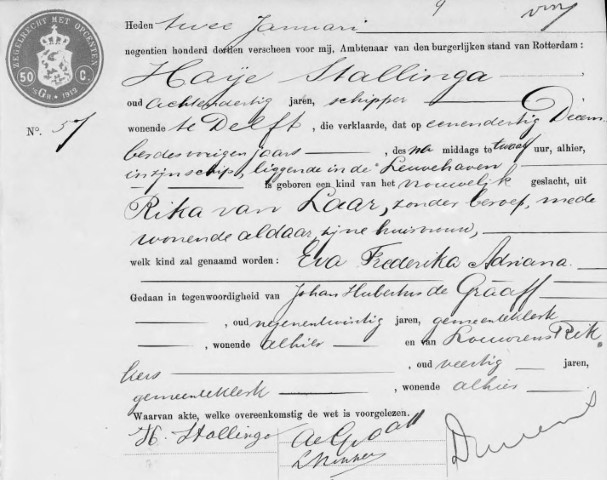 ZEGELRECHT MET OPCENTEN
50 C.
'sGe 1912
Heden twee Januari
negentien honderd dertien verscheen voor mij, Ambtenaar van den burgerlijken stand van Rotterdam:
Haije Stallinga
oud achtendertig jaren, schipper
wonende te Delft, die verklaarde, dat op eenendertig Decem
No. 57
ber des vorigen jaars des na middags te twaalf uur, alhier,
in zijn schip, liggende in de Leuvehaven
is geboren een kind van het vrouwelijk geslacht, uit
Rika van Laar, zonder beroep, mede
wonende aldaar, zijne huisvrouw,
welk kind zal genaamd worden: Eva Frederika Adriana
Gedaan in tegenwoordigheid van Johan Hubertus de Graaff
, oud negenentwintig jaren, gemeenteklerk
, wonende alhier en van Louwrens Rek
kers , oud veertig jaren,
gemeenteklerk , wonende alhier
Waarvan akte, welke overeenkomstig de wet is voorgelezen.
H. Stallinga de Graaff
L Rekkers